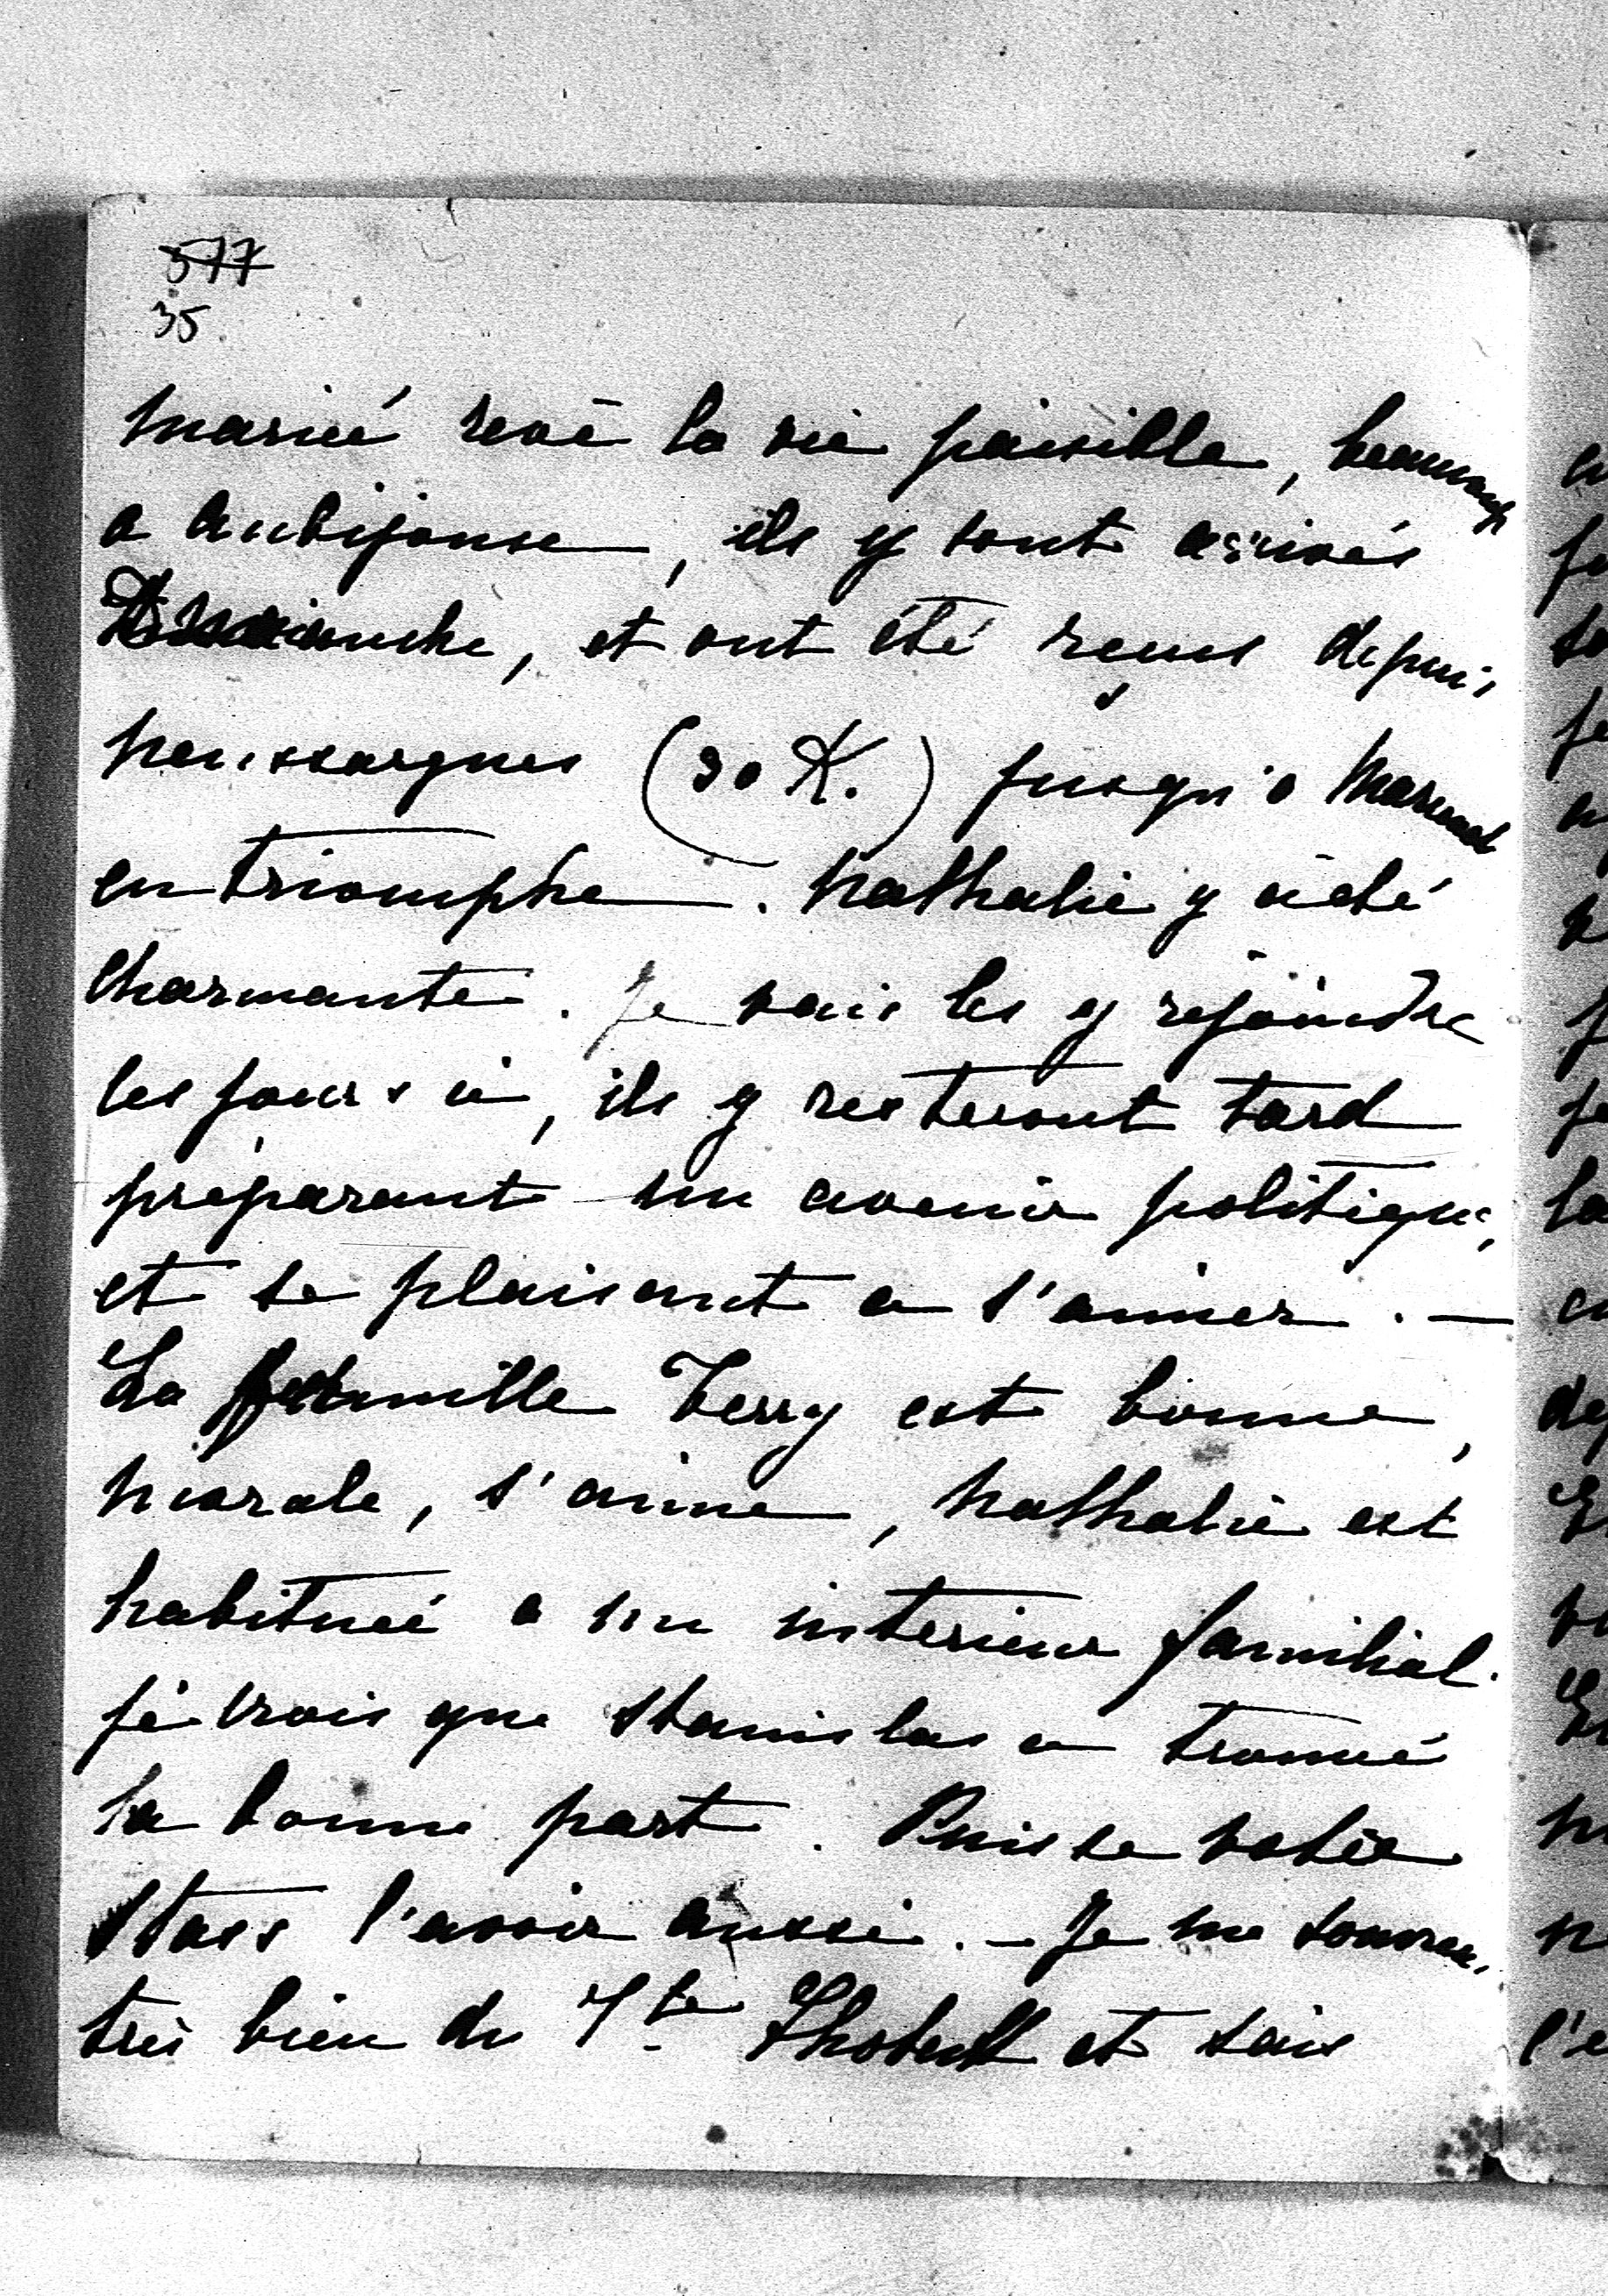 577
35
mariée reve la vie paisible, beaucoup
a Aubijouse, ils y sont arrivés
Dimanche, et ont été reçus depuis
neussargues (20 K.) jusqu'a Marcenat
en triomphe. Nathalie y a été
charmante. Je vais les y rejoindre
les jours ci, ils y resteront tard
préparant un avenir politique,
et se plaisant a s'aimer. —
La famille Terry est bonne,
morale, s'aime, Nathalie est
habituée a un interieur familial.
je crois que Stanislas a trouvé
la bonne part. Puisse votre
Stass l'avoir aussi. — Je me souviens
très bien du Cte et sais